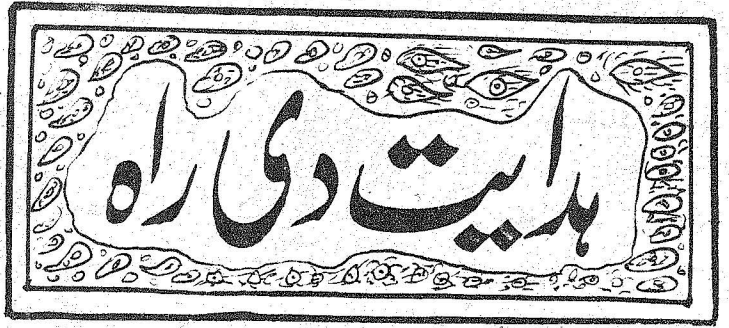 ہدایت دی راہ